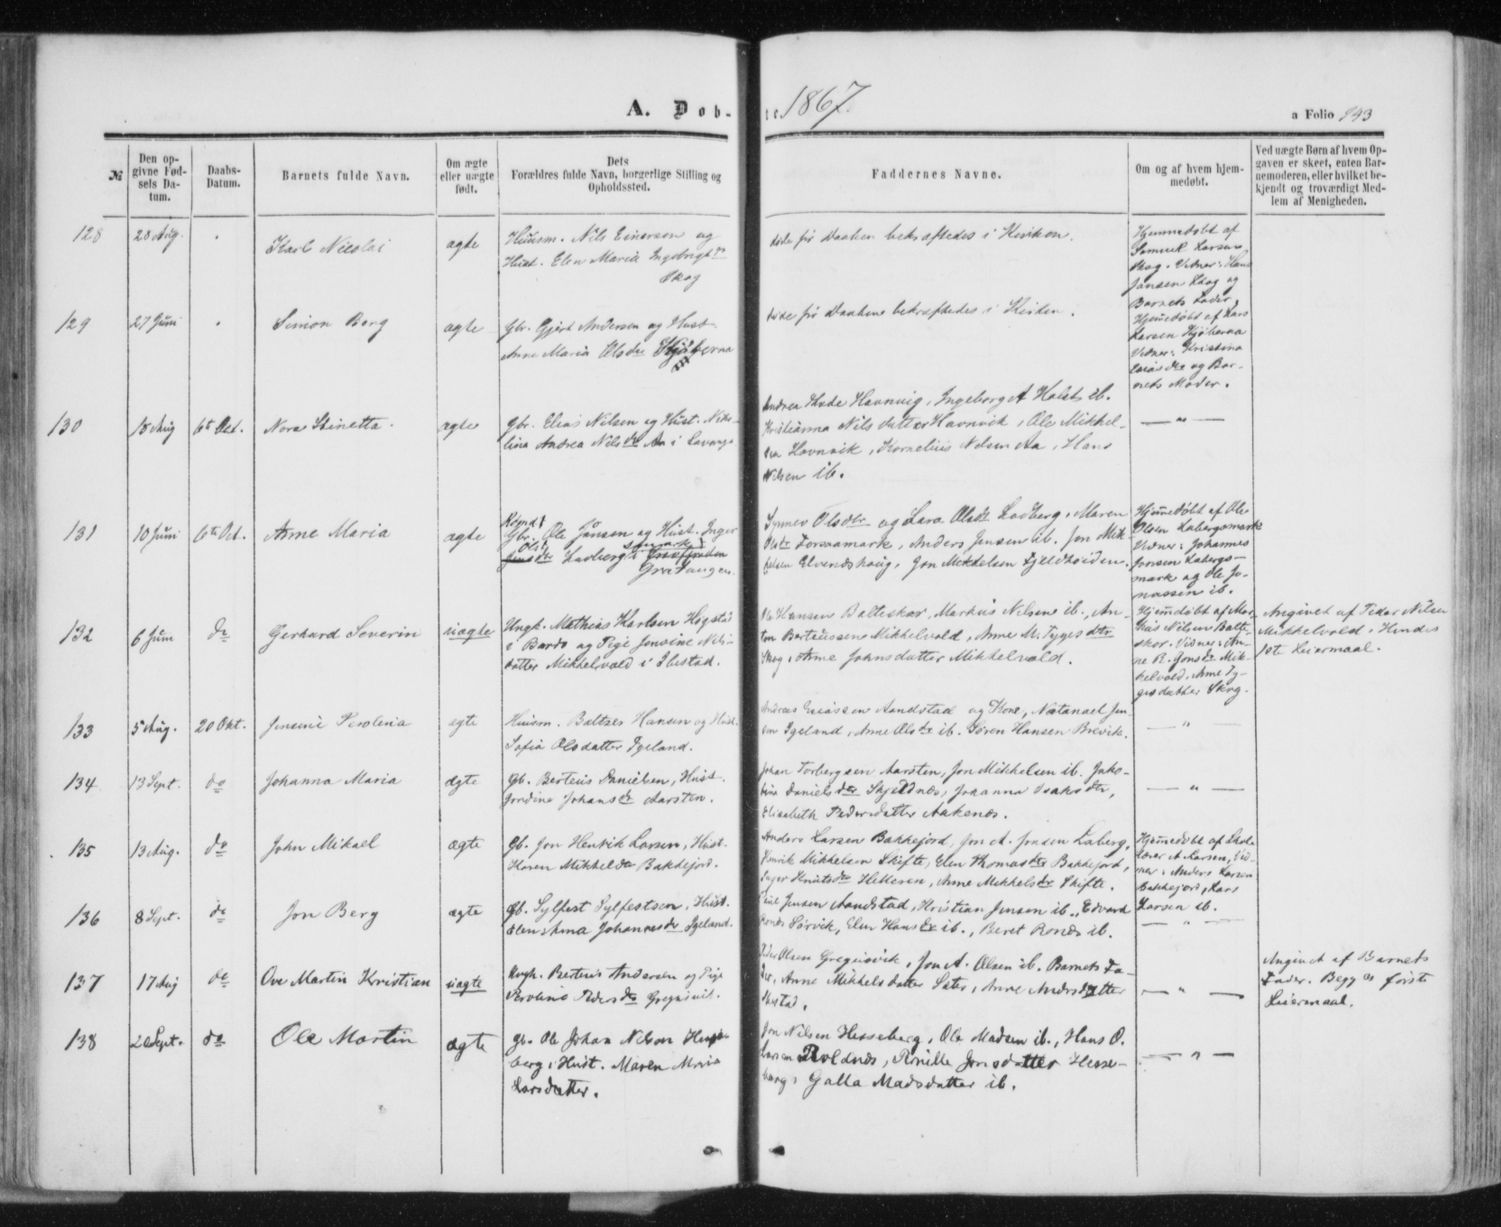 A. Døb-
te 1867.
a Folio
№
Den op-
givne Fød-
sels Da-
tum.
Daabs-
Datum.
Barnets fulde Navn.
Om ægte
eller uægte
født.
Dets
Forældres fulde Navn, borgerlige Stilling og
Opholdssted.
Faddernes Navne.
Om og af hvem hjem-
medøbt.
Ved uægte Børn af hvem Op-
gaven er skeet, enten Bar-
nemoderen, eller hvilket be-
kjendt og troværdigt Med-
lem af Menigheden.
128
28 Aug.
Karl Nicolai
ægte
Huusm. Nils Einersen og
Hust. Elen Maria
Skog
døde før Daaben bekræftedes i Kirken.
Hjemmedøbt af
Larsen,
Skog. Vidner: Hans
Jansen Skog og
Barnets Fader,
129
27 Juni
Simon Berg
ægte
Gbr. Gjert Andersen og Hust.
Anne Maria Olsdtr
døde før Daaben bekræftedes i Kirken.
Hjemedøbt af Lars
Larsen
Vidner: Kristina
og Bar-
nets Moder.
130
15 Aug
6te Oct.
Nora Stinetta.
ægte
Gbr. Elias Nilsen og Hust. Niko-
lina Andrea Nilsdtr Aa i Lavange
Andrea Havnvig, Ingeborg A Holst ib.
Kristianna Nilsdatter Havnvik, Ole Mikkel-
sen Havnvik, Kornelius Nelsen Aa, Hans
Nilsen ib.
— " —
131
10 Juni
6te Oct.
Anne Maria
ægte
Gbr. Ole Jansen og Hust. Inger
Gratangen.
Synnev Olsdtr og Lara Olsdtr Ladberg, Maren
Olsdtr Fossamark, Anders Jensen ib. Jon Mik-
kelsen Elvenæshaug, Jon Mikkelsen Fjeldhøiden.
Hjemedøbt af Ole
Olsen Labergsmark
Vidner: Johannes
Jonsen Labergs-
mark og Ole Jo-
nassen ib.
132
6 Juni
do
Gerhard Severin
uægte
Ungk. Mathias Karlsen Høgstad
i Bardo og Pige Jensine Nils-
datter Mikkelvold i Ibestad.
Ole Hansen Balteskar, Markus Nilsen ib., An-
ton Berteussen Mikkelvold, Anne M. Tygesdtr
Skog, Anne Johnsdatter Mikkelvold.
Hjemdøbt af Mar-
kus Nilsen Balte-
skar. Vidner: An-
ne R. Jonsdtr Mik-
kelvold, Anne Ty-
gesdatter Skog.
Angivet af Peder Nilsen
Mikkelvold, Hendes
1ste Leiermaal.
133
5 Aug.
20 Okt.
Jensine Perolena
ægte
Huusm. Baltzer Hansen og Hust.
Sofia Olsdatter Igeland.
Andreas Eriassen Aandstad og Kone, Natanael Jen-
sen Igeland, Anne Olsdtr ib. Søren Hansen Brevik.
— " —
134
13 Sept.
do
Johanna Maria
ægte
Gb. Berteus Danielsen, Hust.
Johansdtr Aarsten.
Johan Torbergsen Aarsten, Jon Mikkelsen ib. Jako-
bina Danielsdtr Skjeldnes, Johanna Isaksdtr,
Elisabeth Pedersdatter Aakenes.
— " —
135
13 Aug.
do
John Mikael
ægte
Gb. Jon Henrik Larsen, Hust.
Karen Mikkelsdtr Bakkejord.
Anders Larsen Bakkejord, Jon A. Jonsen Laberg,
Henrik Mikkelsen Skifte, Elen Thomasdtr Bakkejord,
Inger Knutsdtr Hilleren, Anne Mikkelsdtr Skifte.
Hjemedøbt af Skole-
lærer A Larsen, Vid-
ner: Anders Larsen
Bakkejord, Lars
Larsen ib.
136
8 Sept.
do
Jon Berg
ægte
Gb. Sylfest Sylfestsen, Hust.
Elen Anna Johannesdtr Igeland.
Jensen Aandstad, Kristian Jensen ib., Edvard
Sørvik, Elen Hansdtr ib., Beret ib.
— " —
137
17 Aug
do
Ove Martin Kristian
uægte
Ungk. Berteus Andersen og Pige
Peroline Pedersdtr
Peder Olsen, Jon A. Olsen ib. Barnets Fa-
der, Anne Mikkelsdatter Sæter, Anne Andersdatter
— " —
Angivet af Barnets
Fader. Begges første
Leiermaal.
138
20 Sept.
do
Ole Martin
ægte
Gb. Ole Johan Nilsen Hesse-
berg, Hust. Maren Maria
Larsdatter.
Jon Nilsen Hesseberg, Ole Madsen ib., Hans O.
Larsen Roldnes, Pernille Jonsdatter Hesse-
berg, Galla Madsdatter ib.
— " —